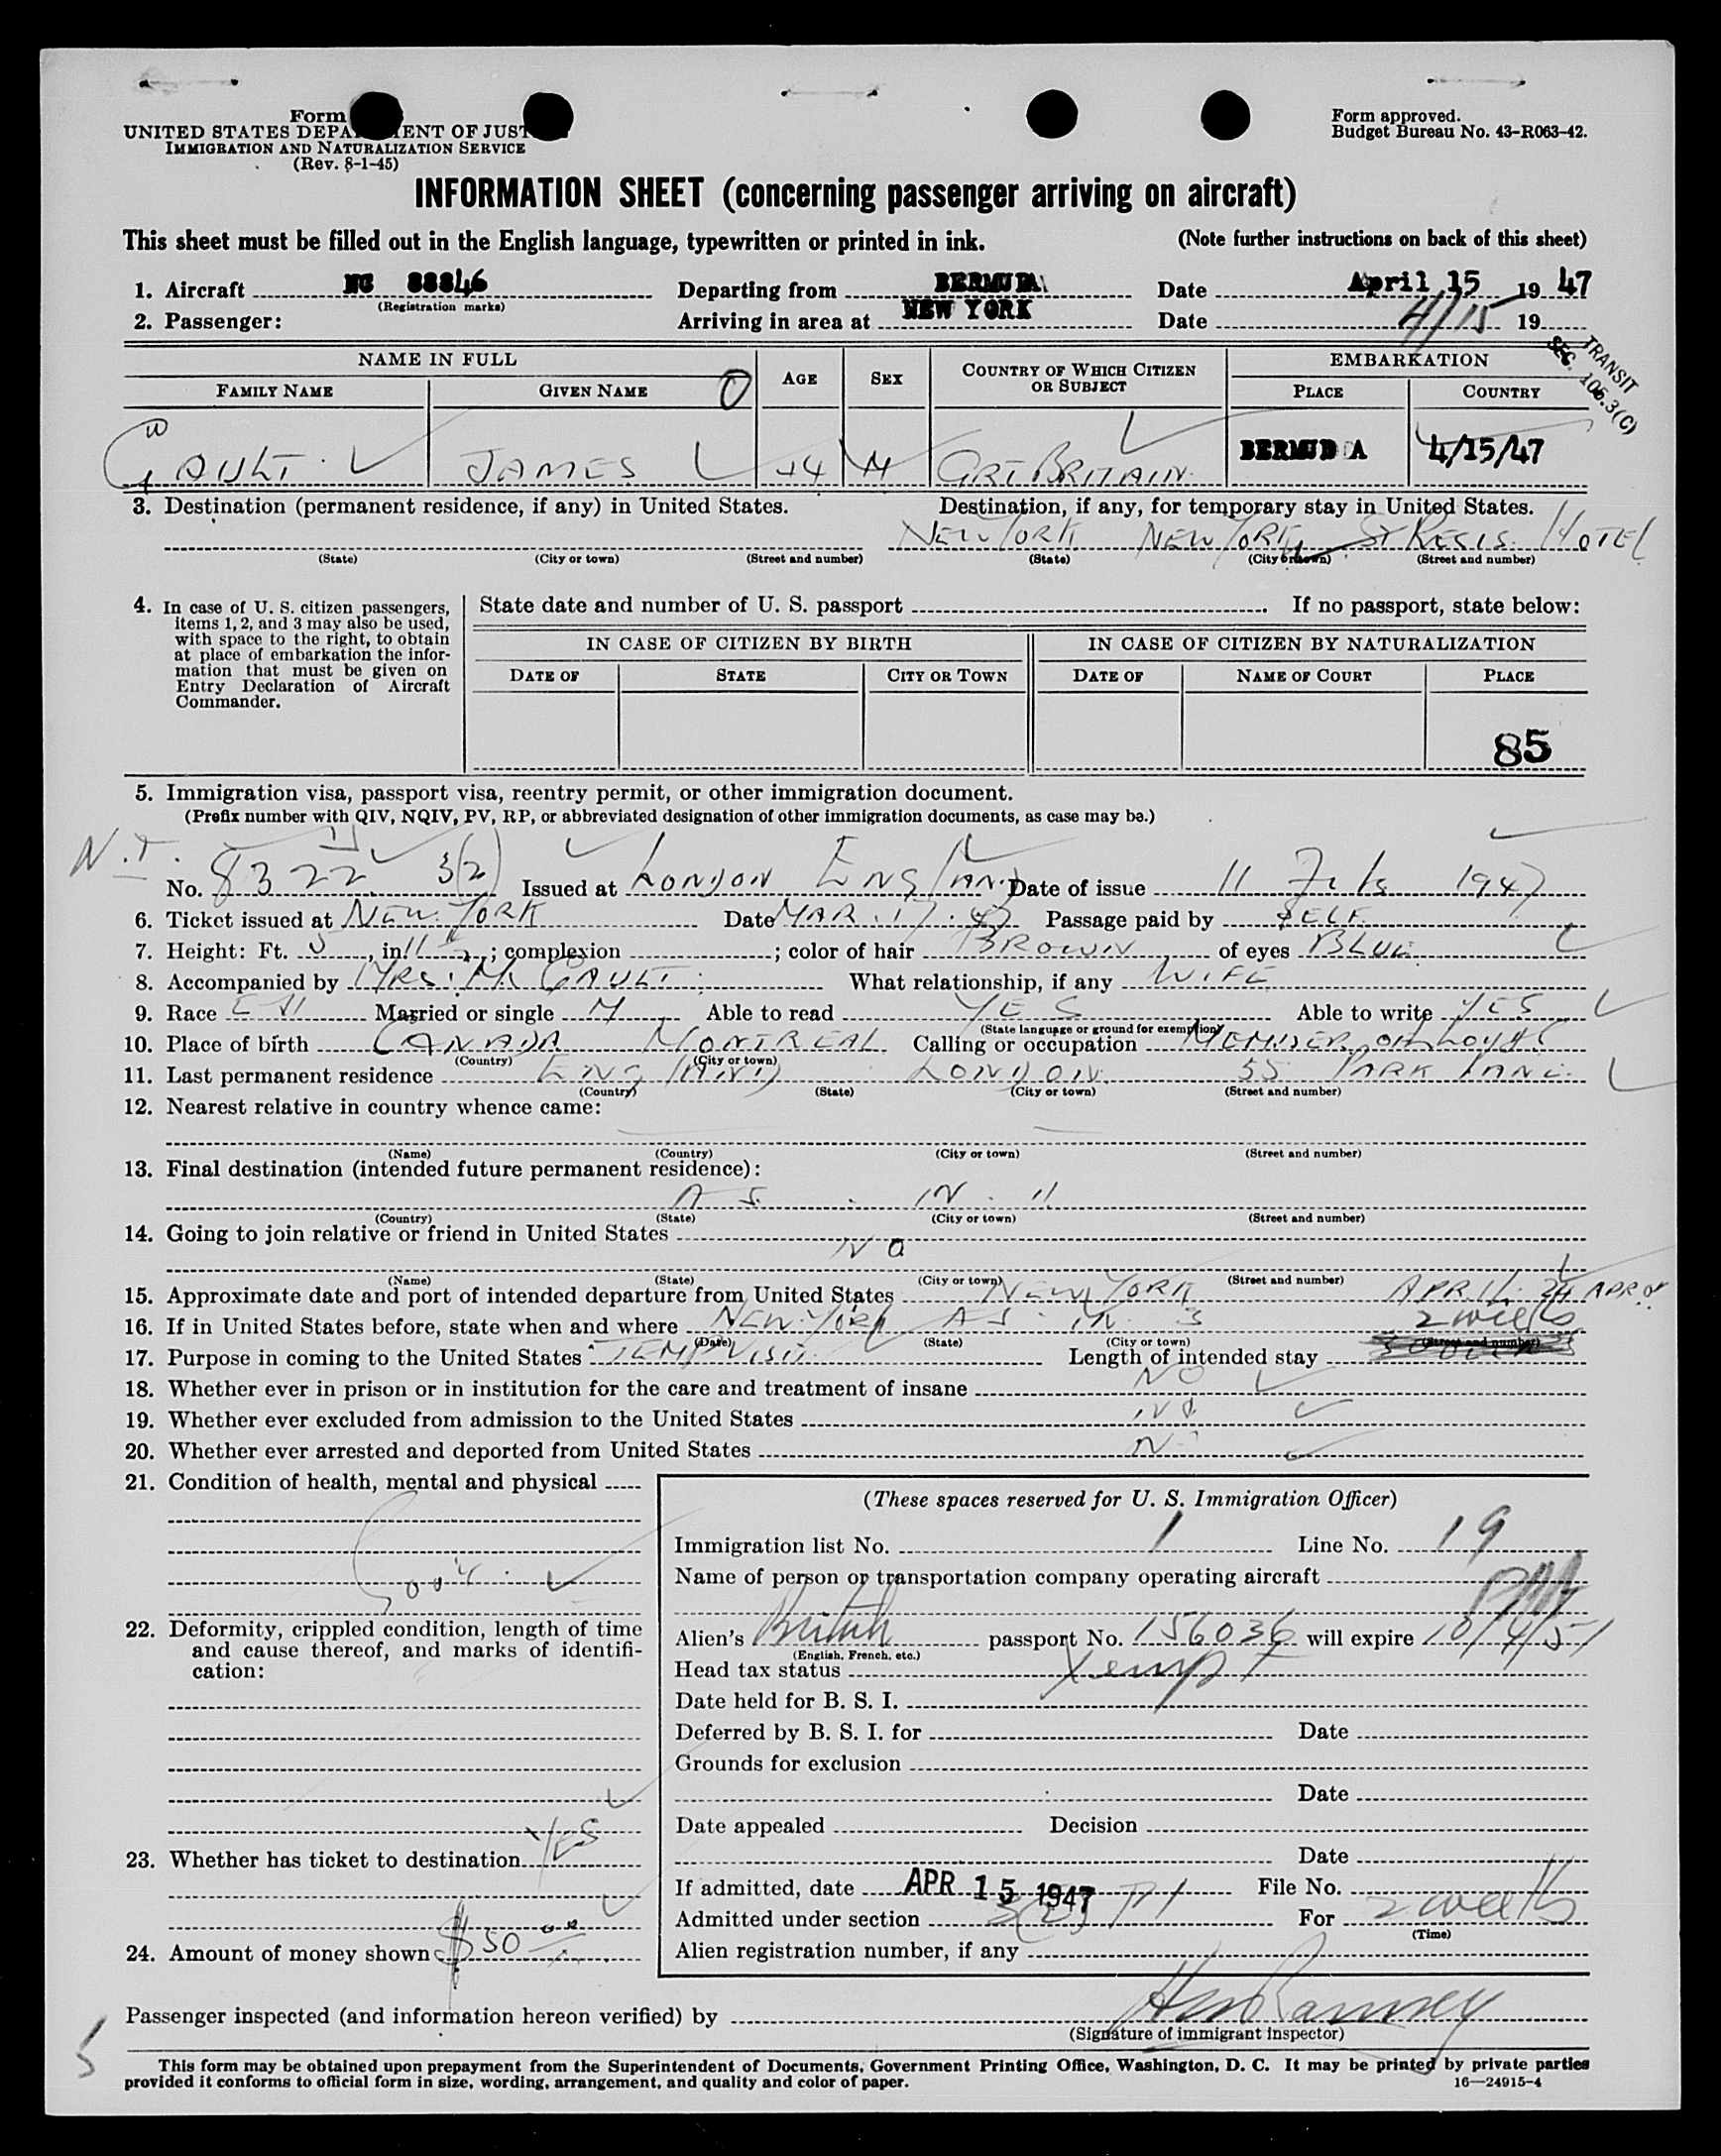 Form
UNITED STATES DEPA ENT OF JUST
IMMIGRATION AND NATURALIZATION SERVICE
(Rev. 8-1-45)
Form approved.
Budget Bureau No. 43-R063-42.
INFORMATION SHEET (concerning passenger arriving on aircraft)
This sheet must be filled out in the English language, typewritten or printed in ink. (Note further instructions on back of this sheet)
1. Aircraft NC 88846 Departing from BERMUDA Date April 15 19 47
(Registration marks)
2. Passenger: Arriving in area at NEW YORK Date 4/15 19
TRANSIT
SEC. 106.3(C)
NAME IN FULL AGE SEX COUNTRY OF WHICH CITIZEN OR SUBJECT EMBARKATION
FAMILY NAME GIVEN NAME PLACE COUNTRY
GAULT JAMES 44 M GRT BRITAIN BERMUDA 4/15/47
3. Destination (permanent residence, if any) in United States. Destination, if any, for temporary stay in United States.
NEW YORK NEW YORK ST REGIS HOTEL
(State) (City or town) (Street and number) (State) (City or town) (Street and number)
4. In case of U. S. citizen passengers, items 1, 2, and 3 may also be used, with space to the right, to obtain at place of embarkation the information that must be given on Entry Declaration of Aircraft Commander.
State date and number of U. S. passport If no passport, state below:
IN CASE OF CITIZEN BY BIRTH IN CASE OF CITIZEN BY NATURALIZATION
DATE OF STATE CITY OR TOWN DATE OF NAME OF COURT PLACE
85
5. Immigration visa, passport visa, reentry permit, or other immigration document.
(Prefix number with QIV, NQIV, PV, RP, or abbreviated designation of other immigration documents, as case may be.)
No. 8322 3(2) Issued at LONDON ENGLAND Date of issue 11 Feb 1947
6. Ticket issued at NEW YORK Date MAR. 17. 47 Passage paid by SELF
7. Height: Ft. 5, in. 11½; complexion ; color of hair BROWN of eyes BLUE
8. Accompanied by MRS. M. GAULT What relationship, if any WIFE
9. Race EN Married or single M Able to read YES Able to write YES
(State language or ground for exemption)
10. Place of birth CANADA MONTREAL Calling or occupation MEMBER OF LLOYDS
(Country) (City or town)
11. Last permanent residence ENGLAND LONDON 55 PARK LANE
(Country) (State) (City or town) (Street and number)
12. Nearest relative in country whence came:
(Name) (Country) (City or town) (Street and number)
13. Final destination (intended future permanent residence):
AS IN 11
(Country) (State) (City or town) (Street and number)
14. Going to join relative or friend in United States
NO
(Name) (State) (City or town) (Street and number)
15. Approximate date and port of intended departure from United States NEW YORK APRIL 24
16. If in United States before, state when and where NEW YORK AS IN 3 2 weeks
(Date) (State) (City or town) (Street and number)
17. Purpose in coming to the United States TEMP VISIT Length of intended stay
18. Whether ever in prison or in institution for the care and treatment of insane NO
19. Whether ever excluded from admission to the United States NO
20. Whether ever arrested and deported from United States NO
21. Condition of health, mental and physical
Good
22. Deformity, crippled condition, length of time and cause thereof, and marks of identification:
23. Whether has ticket to destination YES
24. Amount of money shown $50 00
(These spaces reserved for U. S. Immigration Officer)
Immigration list No. 1 Line No. 19
Name of person or transportation company operating aircraft
Alien's British passport No. 156036 will expire 10/4/51
(English, French, etc.)
Head tax status Xempt
Date held for B. S. I.
Deferred by B. S. I. for Date
Grounds for exclusion
Date
Date appealed Decision
Date
If admitted, date APR 15 1947 File No.
Admitted under section 3(2) For 2 weeks
(Time)
Alien registration number, if any
Passenger inspected (and information hereon verified) by
(Signature of immigrant inspector)
This form may be obtained upon prepayment from the Superintendent of Documents, Government Printing Office, Washington, D. C. It may be printed by private parties
provided it conforms to official form in size, wording, arrangement, and quality and color of paper. 16—24915-4